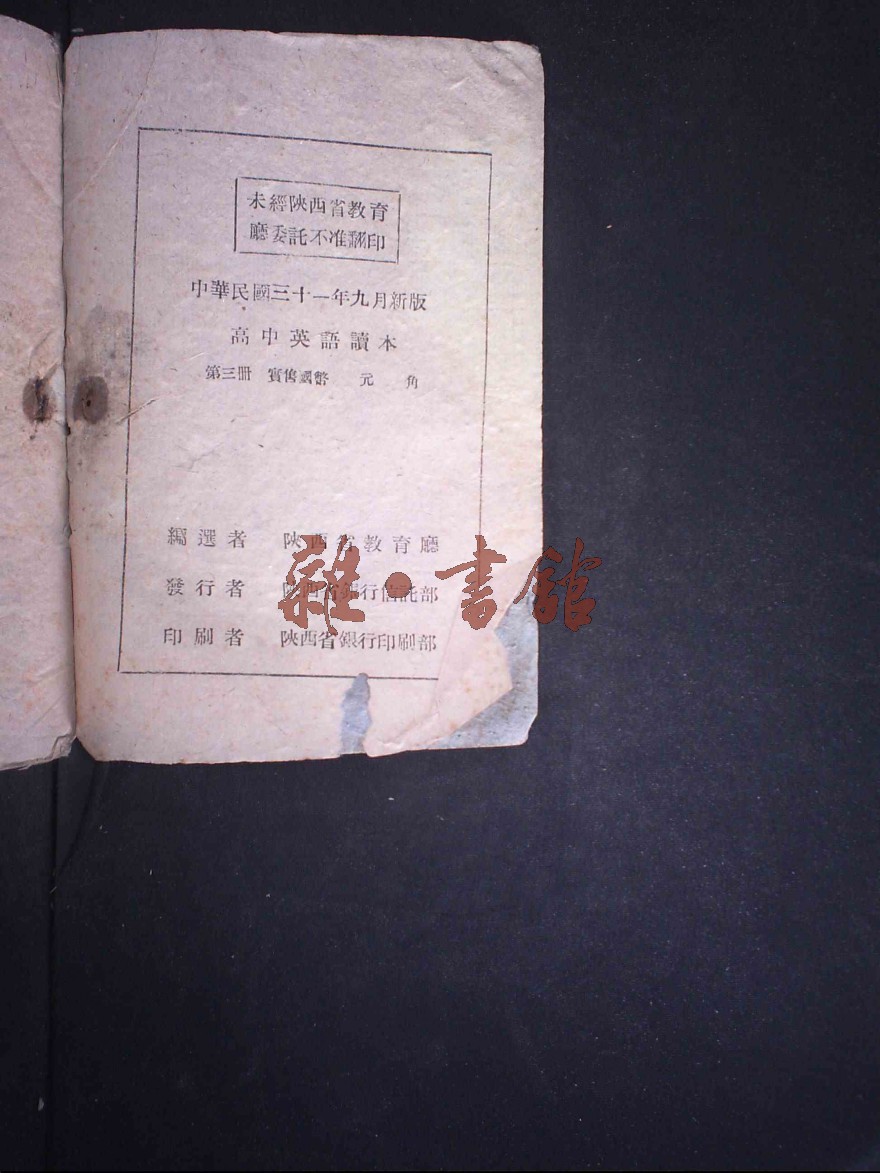 未經陝西省教育
廳委託不准翻印
中華民國三十一年九月新版
高中英語讀本
第三冊 實售國幣 元 角
編選者 陝西省教育廳
發行者 陝西省銀行信託部
印刷者 陝西省銀行印刷部
雜·書館